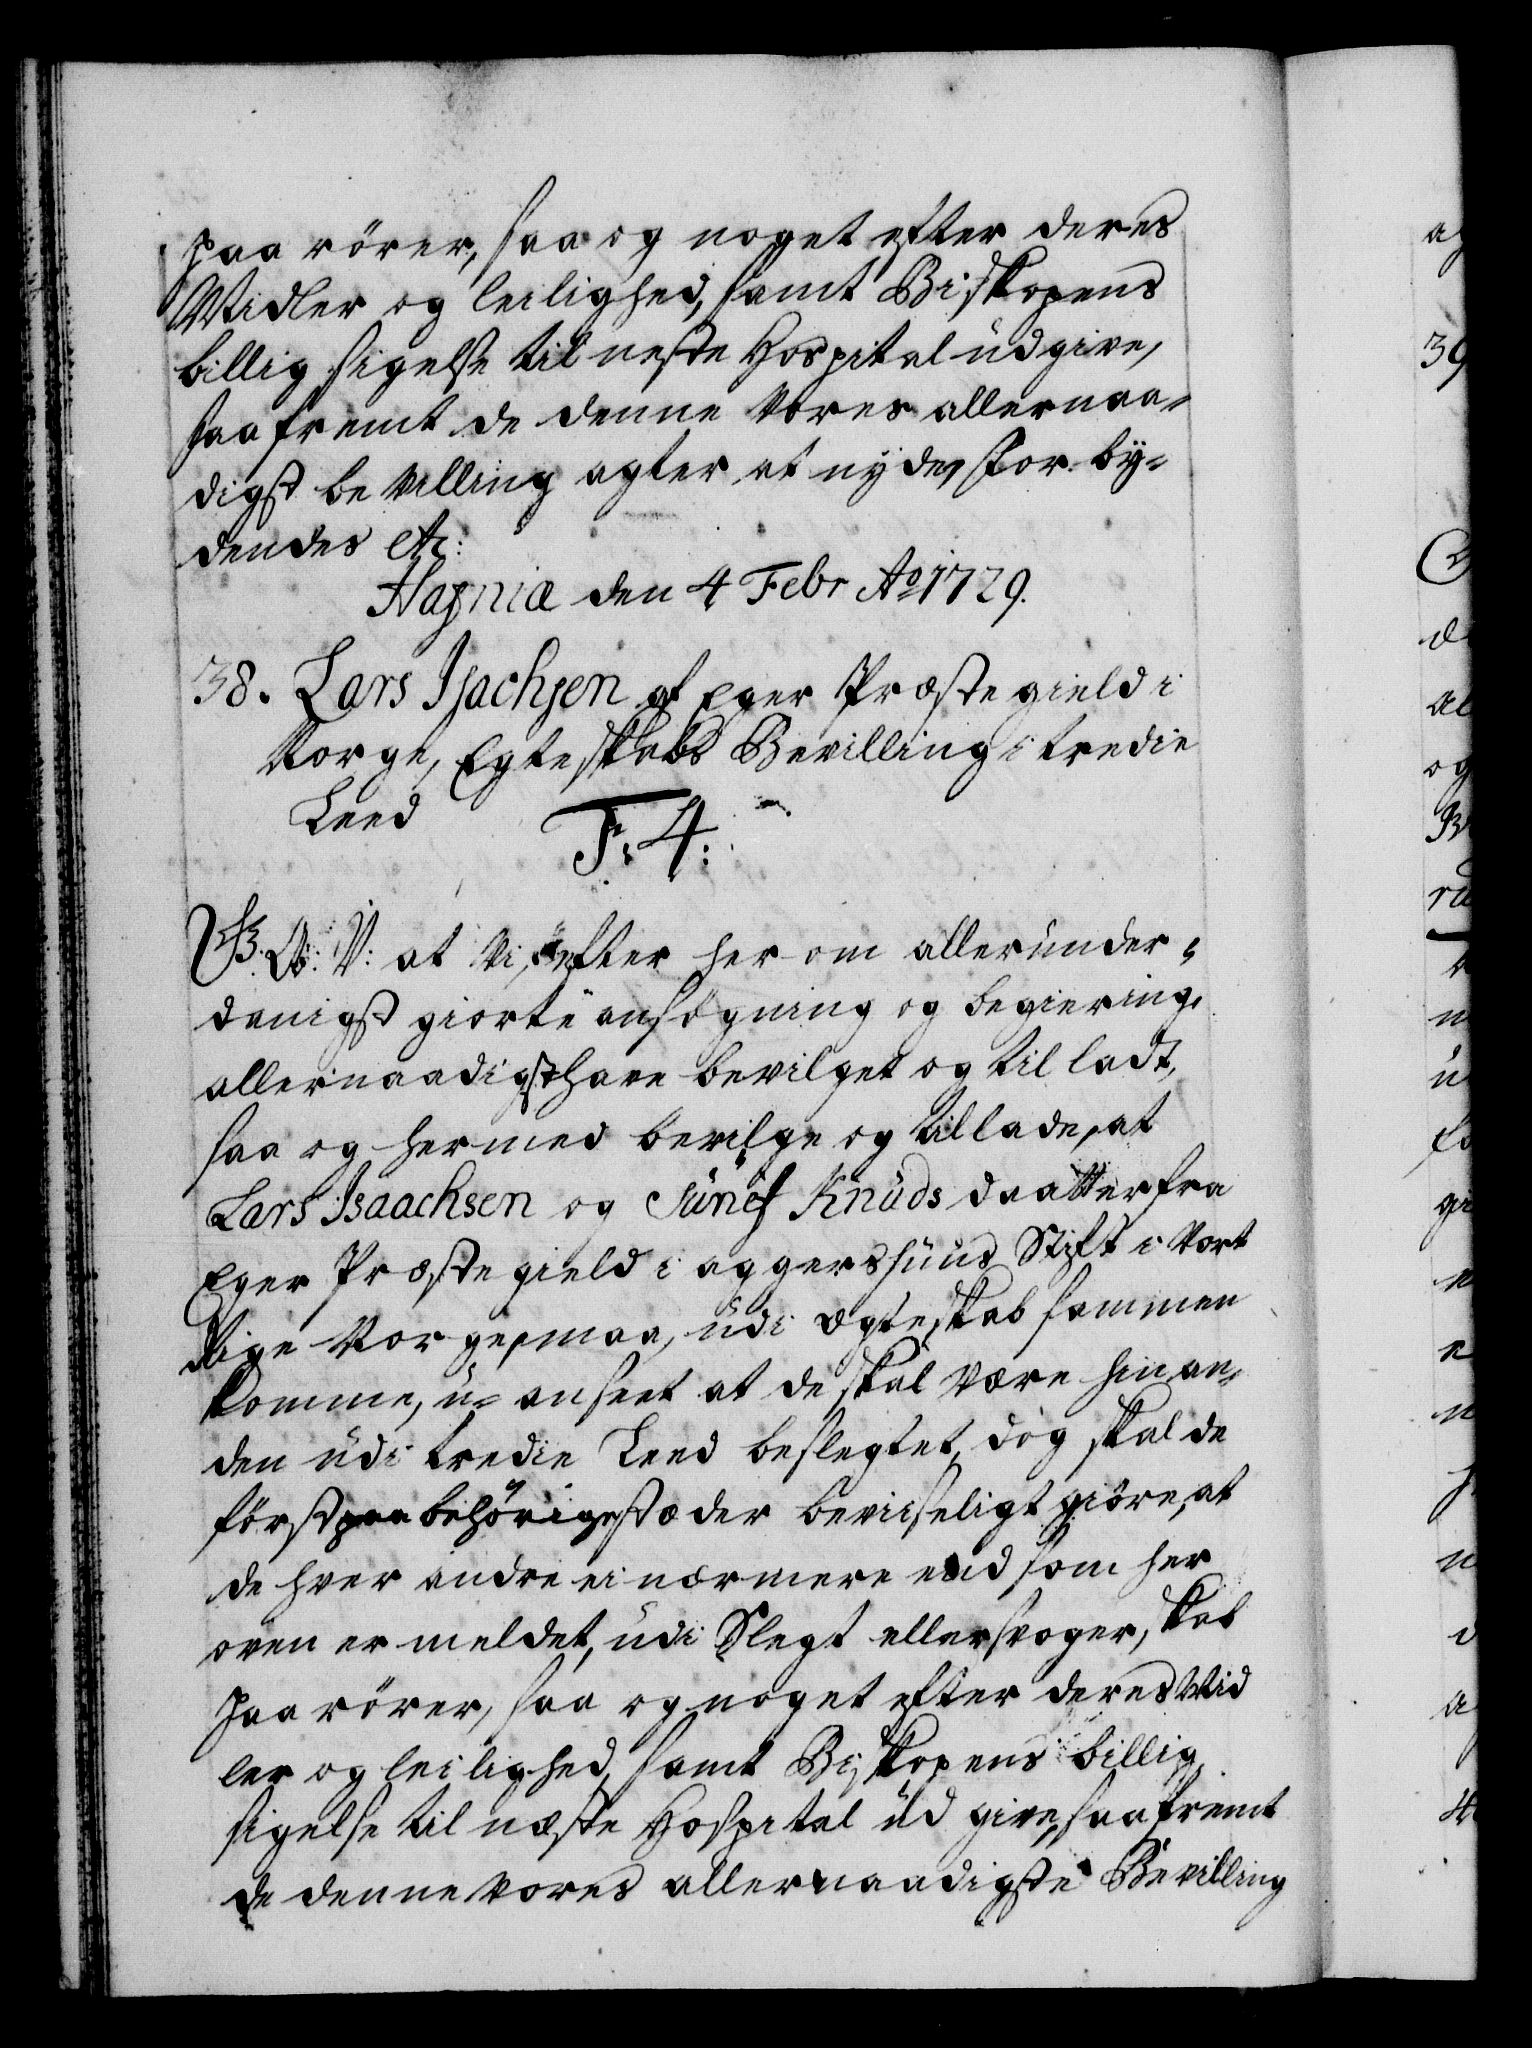 paa rörer, saa og noget efter deres
Midler og leilighed, samt Biskopens
billig sigelse til neste Hospital udgive,
saafremt de denne vores allernaa-
digst bevilling agter at nyde, Forby-
dendes etc:
Hafniæ den 4 Febr Ao 1729.
38. Lars Isachsen af Eger Præstegield i
Norge, Egteskabs Bevilling i tredie
Leed
F: 4:
G. A: V: at Vi, efter her om allerunder-
danigst giorte ansögning og begiering,
allernaadigst have bevilget og tilladt,
saa og hermed bevilge og tillade, at
Lars Isaachsen og Knuds daatter fra
Eger Præstegield i Aggershuus Stift i Vort
Rige Norge, maa, udi Egteskab sammen
komme, u-anseet at de skal være hinan-
den udi tredie Leed beslegtet, dog skal de
först paa behörige stæder beviiseligt giöre, at
de hver andre ei nærmere end som her
oven er meldet, udi Slegt eller svogerskab
paarörer, saa og noget efter deres Mid
ler og leilighed, samt Biskopens billig
sigelse til næste Hospital udgive, saafremt
de denne vores allernaadigste Bevilling